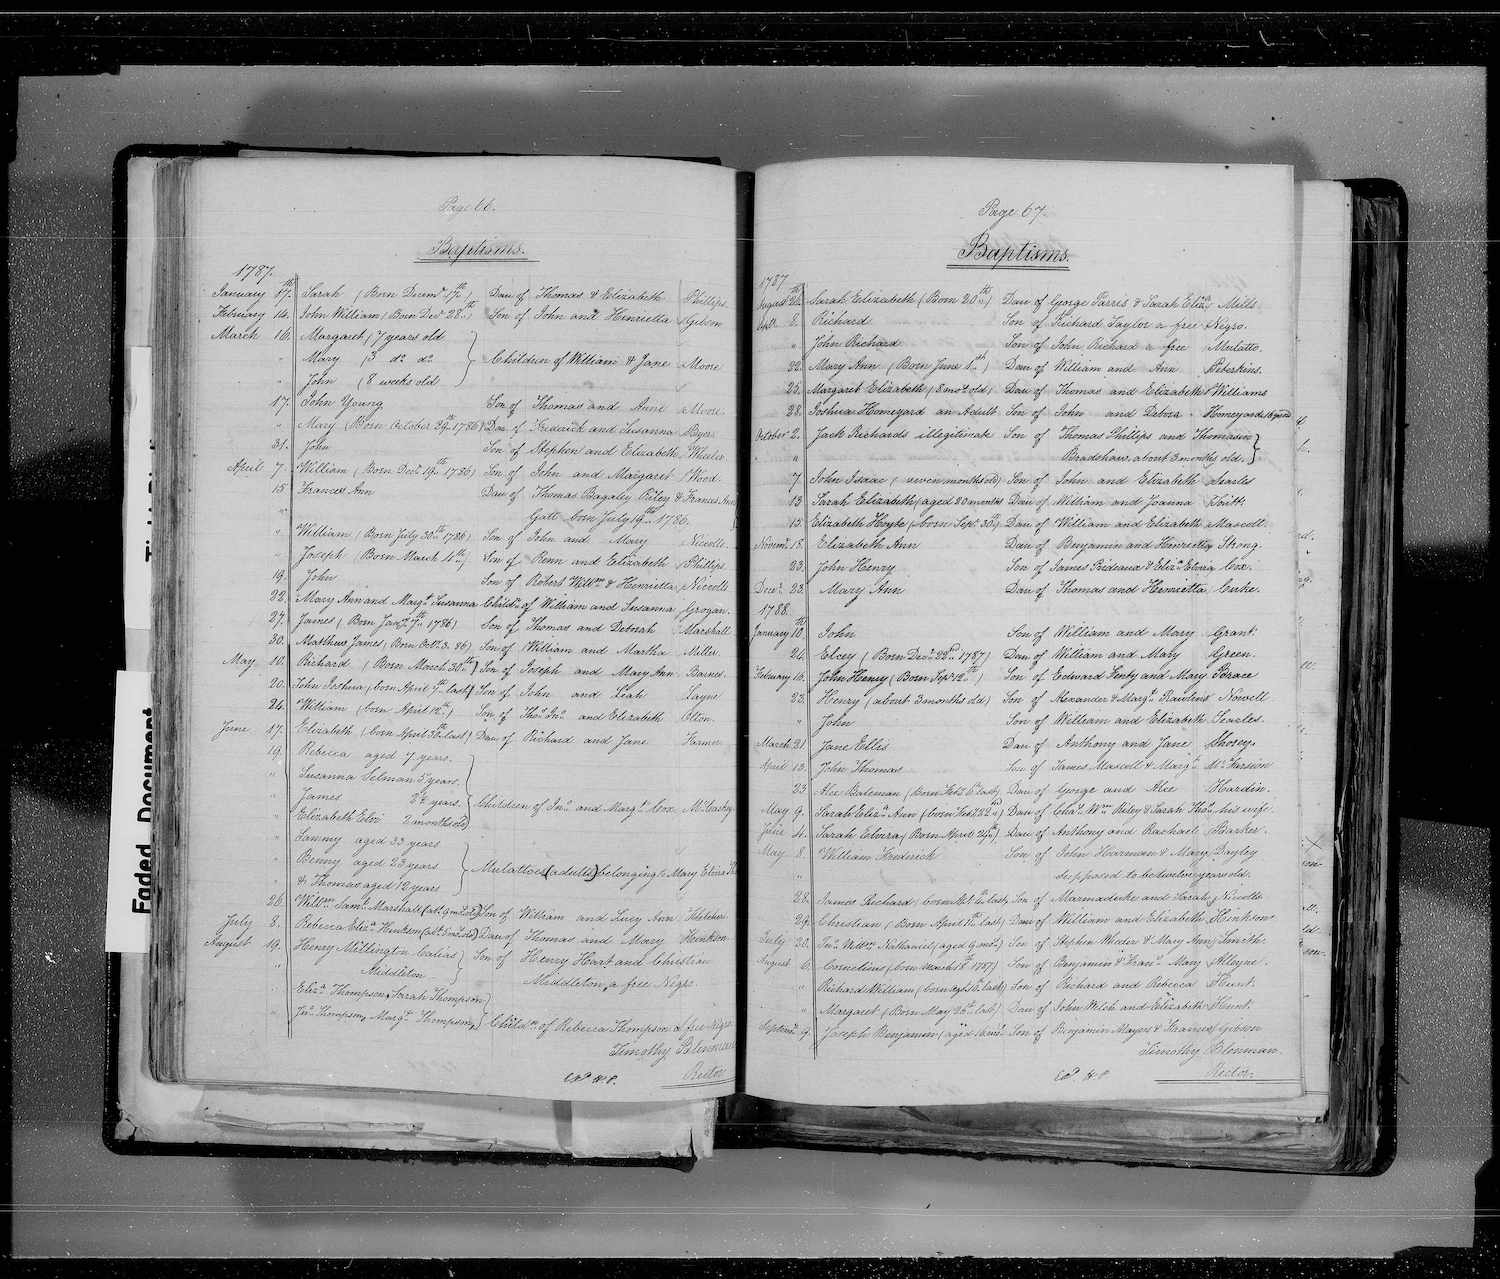 Page 66.
Baptisms.
1787.
January 17th. Sarah (Born Decemr. 17th) Dau of Thomas & Elizabeth Phillips
February 14. John William (Born Decr 28th) Son of John and Henrietta Gibson
March 16. Margaret (7 years old
" Mary (3 do. do.
Children of William & Jane Moore
" John (8 weeks old)
17. John Young Son of Thomas and Anne Moore
" Mary (Born October 29th 1786) Dau of Frederick and Susanna
31. John Son of Stephen and Elizabeth Wheeler
April 7. William (Born Decr. 19th 1786) Son of John and Margaret Wood.
15 Frances Ann Dau of Thomas Bagaley Riley & Frances Ann
" Gatt born July 19th 1786.
" William (Born July 30th 1786) Son of John and Mary Niccolls
" Joseph (Born March 11th) Son of Renn and Elizabeth Phillips
19. John Son of Robert Willm. & Henrietta Niccolls
22. Mary Ann and Margt. Susanna Childn. of William and Susanna Grogan.
27. James (Born Jany. 7th 1786) Son of Thomas and Deborah Marshall
30. Matthew James (Born Octr. 3. 86) Son of William and Martha Miller
May 10. Richard (Born March 30th) Son of Joseph and Mary Ann Barnes
20. John Joshua (born April 7th last) Son of John and Leah Layne
24. William (born April 12th) Son of Thos. Jno. and Elizabeth Olton.
June 17. Elizabeth (born April 30 last) Dau of Richard and Jane Farmer
19. Rebecca aged 7 years.
" Susanna Selman 5 years.
" James 2½ years.
Children of Jno. and Margt. Cox,
" Elizabeth Elvi 2 months old
" Sammy aged 33 years
" Benny aged 23 years
Mulattoes (adults) belonging to Mary Eliza
" & Thomas aged 12 years
26. Willm Saml. Marshall (abt. 9 mos. old) Son of William and Lucy Ann Fletcher
July 8. Rebecca Elizth. Henkson Dau of Thomas and Mary Henkson
August 19. Henry Millington Calias Son of Henry Hart and Christian
" Middleton Middleton, a free Negro
" Elizth. Thompson, Sarah Thompson
" Jno. Thompson, Margt. Thompson, Childn. of Rebecca Thompson a free Negro
Timothy Blenman
Rector
Page 67.
Baptisms.
1787
August 26th. Sarah Elizabeth (Born 20th) Dau of George Parris & Sarah Elizth. Mills
Sept. 8. Richard Son of Richard Taylor a free Negro.
" John Richard Son of John Richard a free Mulatto.
22. Mary Ann (Born June 1st) Dau of William and Ann
25. Margaret Elizabeth (8 mos. old) Dau of Thomas and Elizabeth Williams
28. Joshua Homeyard an Adult Son of John and Debra Homeyard
October 2. Jack Richards illegitimate Son of Thomas Phillips and Thomasin
" Bradshaw, about 3 months old.
7 John Isaac (seven months old) Son of John and Elizabeth Searles
13 Sarah Elizabeth (aged 20 months Dau of William and Joanna
15. Elizabeth Hoyte (born Sept. 30th) Dau of William and Elizabeth Mascoll.
Novemr. 18. Elizabeth Ann Dau of Benjamin and Henrietta Strong.
23. John Henry Son of James Prideaux & Elizth. Elvira Cox.
Decr. 23. Mary Ann Dau of Thomas and Henrietta Cuke.
1788.
January 10th. John Son of William and Mary Grant.
24. Elcey (Born Decr. 22nd 1787) Dau of William and Mary Green.
February 16. John Henry (Born Sept 12th) Son of Edward Fenty and Mary Brace
23. Henry (about 3 months old) Son of Alexander & Margt. Rawlins Nowell
" John Son of William and Elizabeth Searles.
March 21 Jane Ellis Dau of Anthony and Jane Shorey.
April 13. John Thomas Son of James Mascoll & Margt.
23 Alce Bateman (Born Feby. 6th last) Dau of George and Alce Hardin.
May 9. Sarah Elizth. Ann (born Feby. 22nd) Dau of Chas. Wm. Riley & Sarah Thos. his wife
June 4. Sarah Elvira (Born April 24th) Dau of Anthony and Rachael Barker.
May 8. William Frederick Son of John Hoorman & Mary Dayley
" supposed to be twelve years old.
28. James Richard (born Oct. 6th last) Son of Marmaduke and Sarah Nicolls
29. Christian (Born April 8th last) Dau of William and Elizabeth Henkson
July 30. Jno. Willm. Nathaniel (aged 9 mos.) Son of Stephen Wheeler & Mary Ann Smith.
August 6. Cornelius (born March 18th 1787) Son of Benjamin & Frans. Mary Alleyne.
" Richard William (born Septr. 6th last) Son of Richard and Rebecca Hunt.
" Margaret (Born May 26th last) Dau of John Welch and Elizabeth Hunt.
Septemr. 9. Joseph Benjamin (aged 10 mos. Son of Benjamin Mayers & Frances Gibson
Timothy Blenman.
Rector.
Faded Document